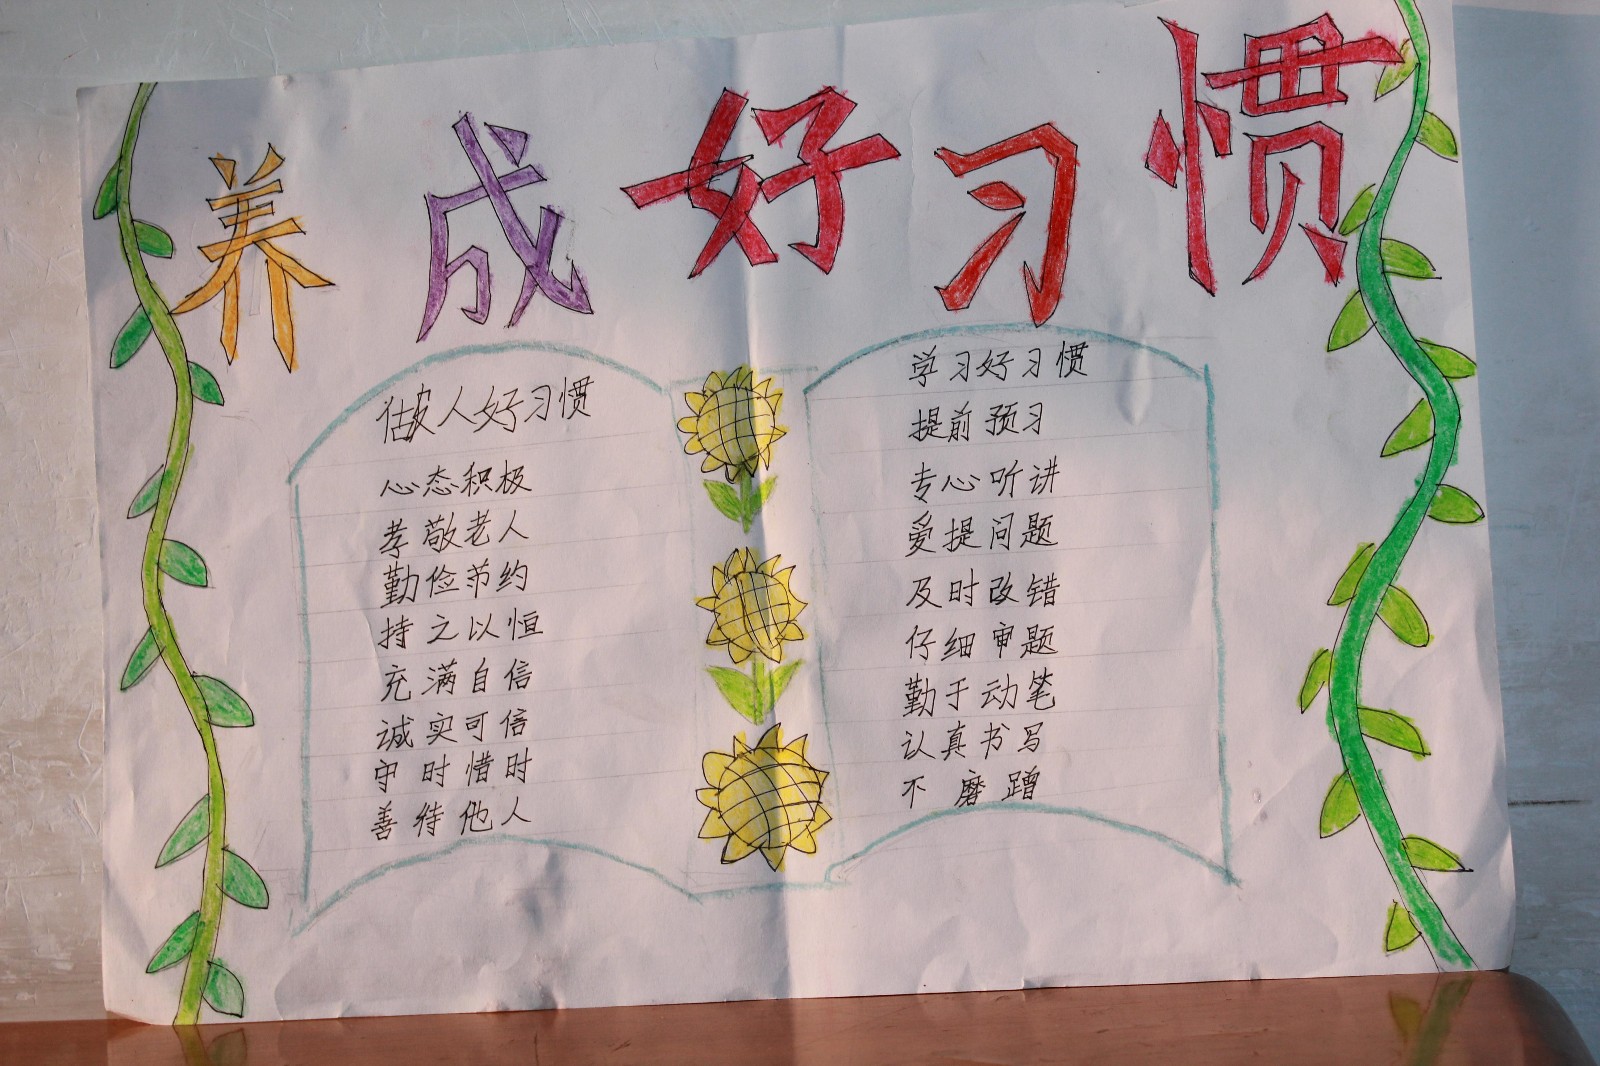 养成好习惯
做人好习惯
心态积极
孝敬老人
勤俭节约
持之以恒
充满自信
诚实可信
守时惜时
善待他人
学习好习惯
提前预习
专心听讲
爱提问题
及时改错
仔细审题
勤于动笔
认真书写
不磨蹭